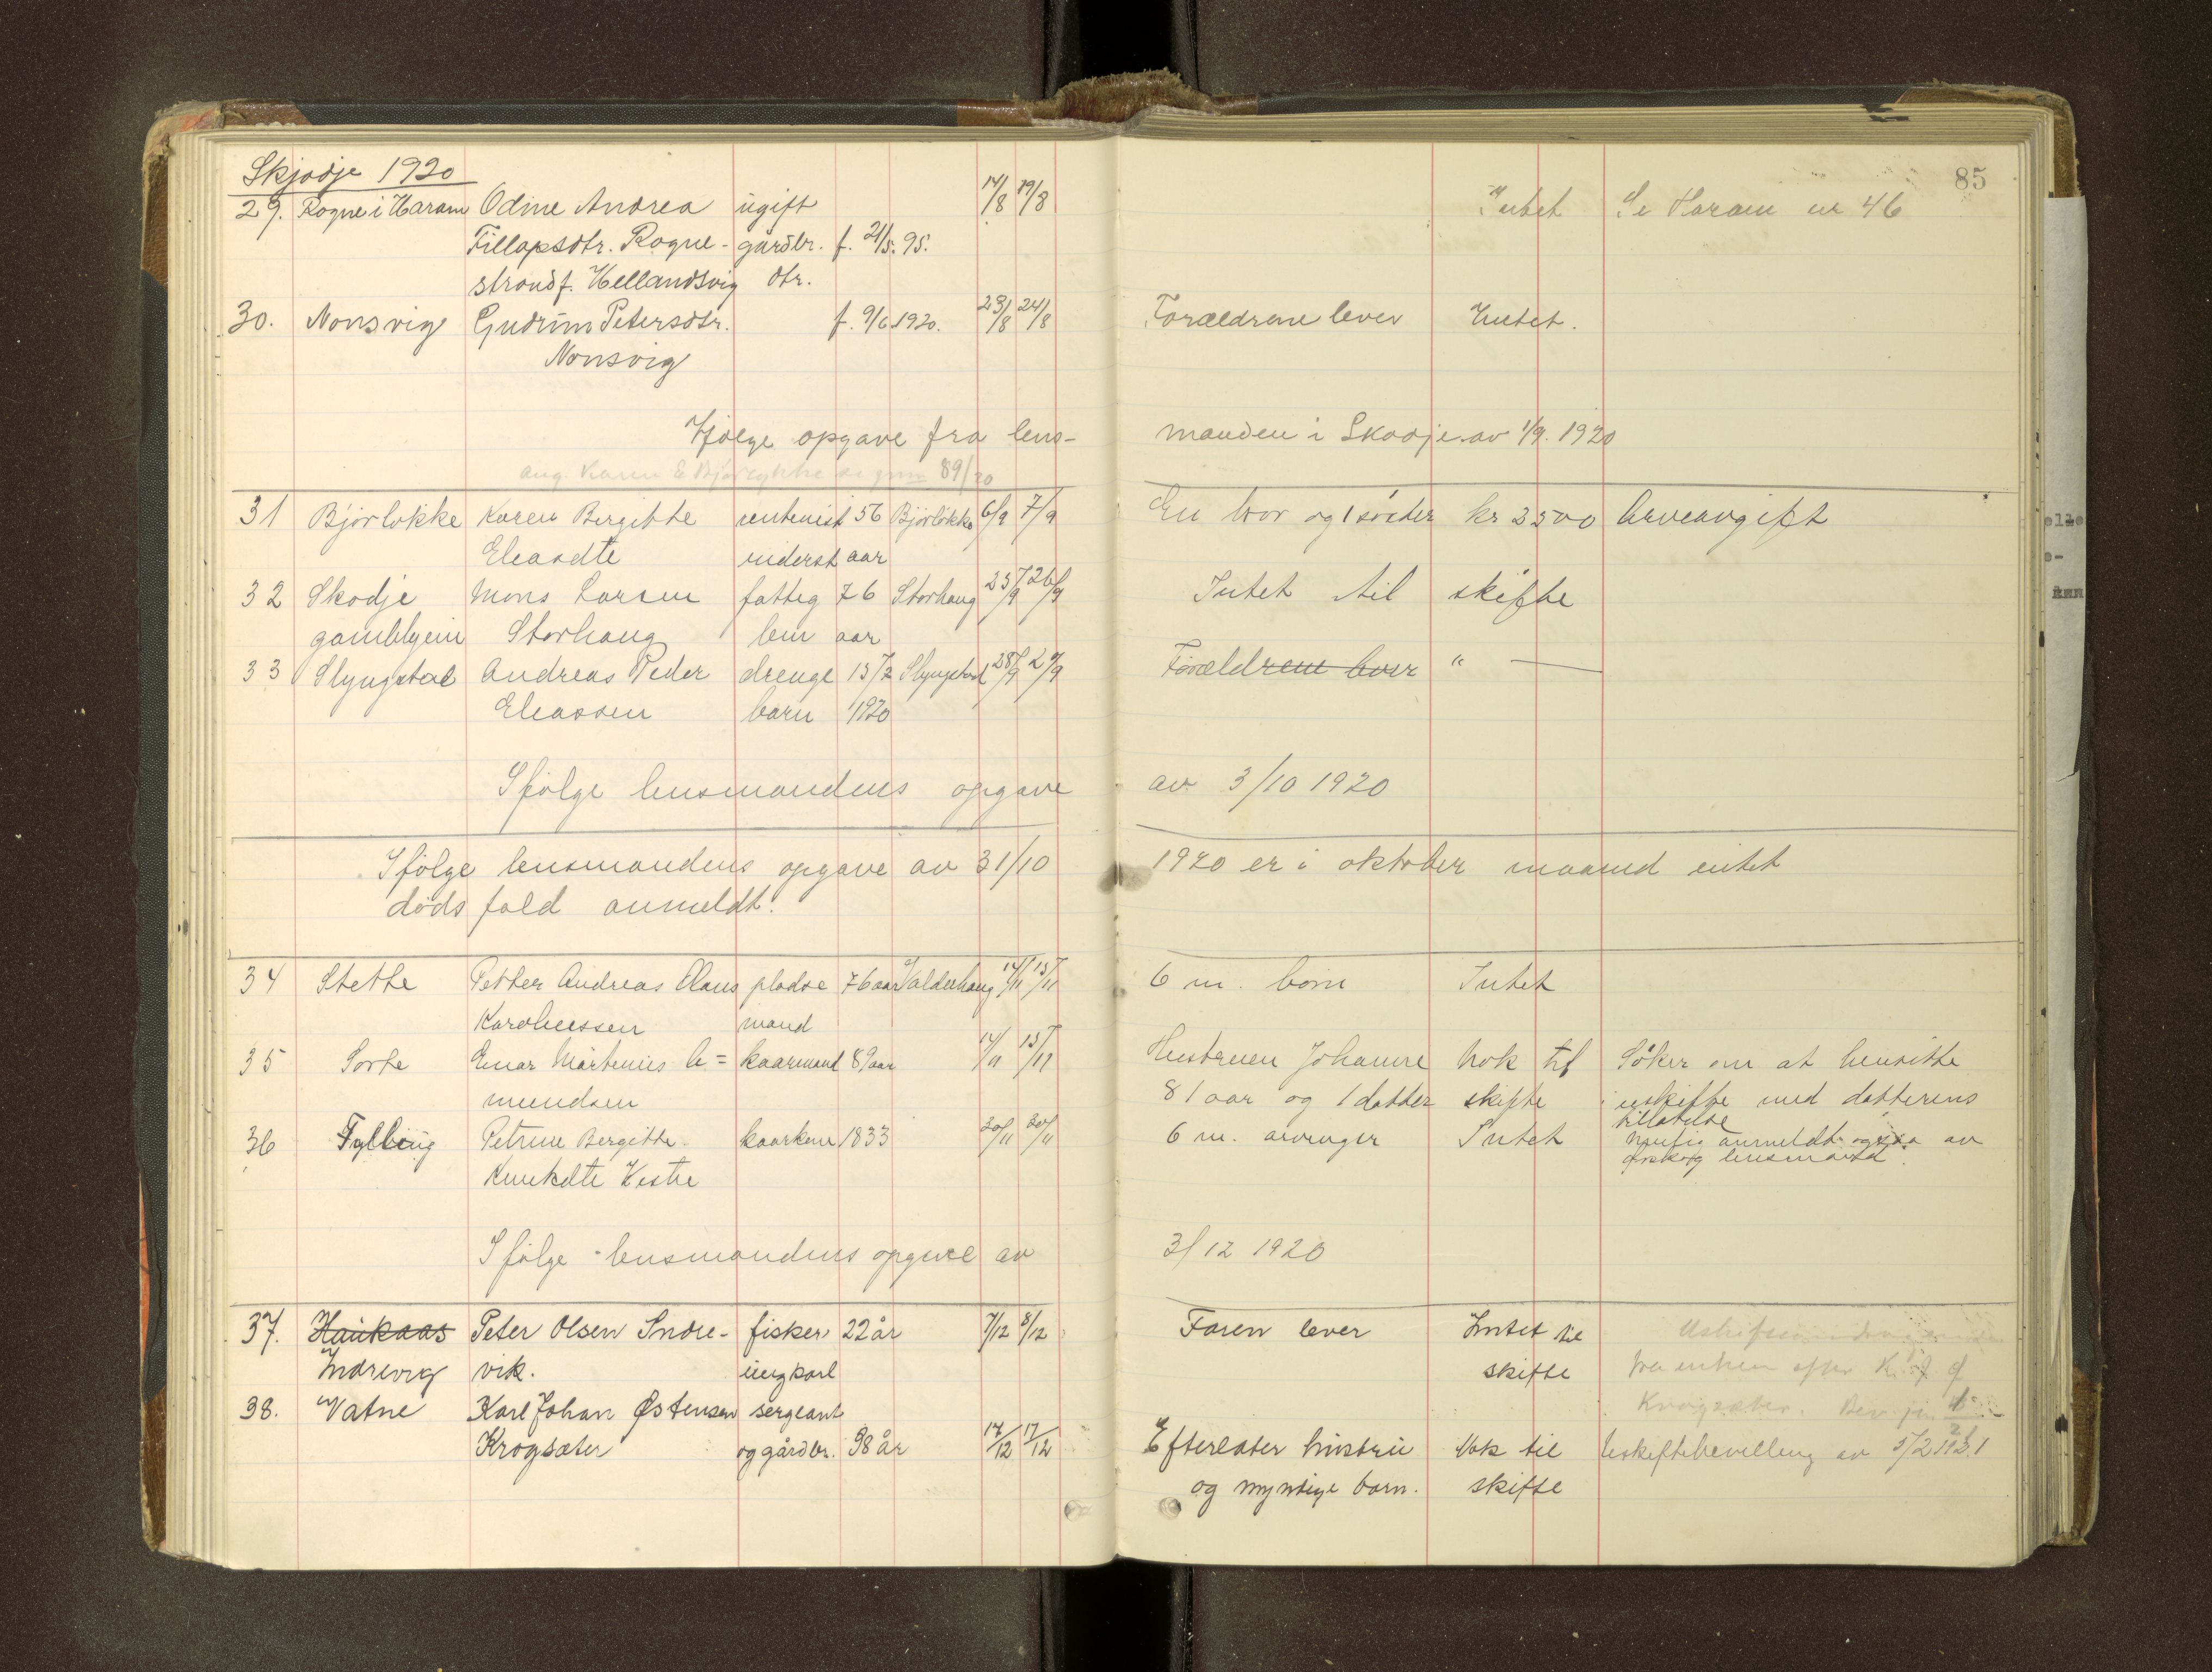 Skjodje 1920
85
29. Rogne i Haram Odine Andrea ugift 14/8 19/8 Intet Se Haram nr 46
Fillapsdtr. Rogne- gårdbr. f. 21/5. 95.
strand f. Hellandsvig dtr.
30. Nonsvig Gudrun Petersdtr. f. 9/6 1920. 23/8 24/8 Forældrene lever Intet.
Nonsvig
Ifølge opgave fra lens- manden i Skodje av 1/9. 1920
ang. Karen E Bjørlykke se 89/20
31 Bjørløkke Karen Bergitte rentenist 56 Bjørløkke 6/9 7/9 En bror og 1 søster kr 3500 Arveavgift
Eleasdtr inderst aar
32 Skodje Mons Larsen fattig 76 Storhaug 25/9 26/9 Intet til skifte
gamlehjem Storhaug lem aar
33 Slyngstad Andreas Peder drenge 15/2 Slyngstad 28/9 29/9 Forældrene lever " —
Eleassen barn 1920
Ifølge lensmandens opgave av 3/10 1920
Ifølge lensmandens opgave av 31/10 1920 er i oktober maaned intet
døds fald anmeldt.
34 Stette Petter Andreas Olaus pladse 76 aar Valderhaug 14/11 15/11 6 m. børn Intet
mand
35 Sorte Einar Mårtenius A= kaarmand 89 aar 14/11 15/11 Hustruen Johanne Nok til Søker om at hensitte
mundsen 81 aar og 1 datter skifte i uskifte med datterens
tillatelse
36 Fylling Petrine Bergitte kaarkone 1833 20/11 20/11 6 m. arvinger Intet anmeldt ogsaa av
Ørskog lensmand.
Knutsdtr Vestre
Ifølge lensmandens opgave av 3/12 1920
37. Haukaas Peter Olsen Indre- fisker 22 år 7/12 8/12 Faren lever Intet til
Indrevig vik. ungkarl skifte
38. Vatne Karl Johan Østensen sergeant Krogsæter.
Krogsæter og gårdbr. 58 år 17/12 17/12 Efterlater hustru Nok til Uskiftebevilling av 5/2 1921
og myndige barn. skifte